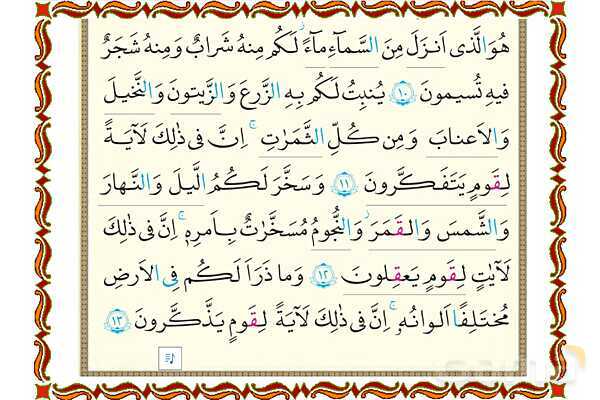 هُوَ الَّذی اَنزَلَ مِنَ السَّمآءِ مآءً ۖ لَكُم مِنهُ شَرابٌ وَ مِنهُ شَجَرٌ
فیهِ تُسیمونَ ١٠ یُنبِتُ لَكُم بِهِ الزَّرعَ وَ الزَّیتونَ وَ النَّخیلَ
وَ الاَعنابَ وَ مِن كُلِّ الثَّمَرٰتِ ۚ اِنَّ فی ذٰلِكَ لَآیَةً
لِقَومٍ یَتَفَكَّرونَ ١١ وَ سَخَّرَ لَكُمُ الَّیلَ وَ النَّهارَ
وَ الشَّمسَ وَ القَمَرَ ۖ وَ النُّجومُ مُسَخَّرٰتٌ بِاَمرِهٖ ۚ اِنَّ فی ذٰلِكَ
لَآیٰتٍ لِقَومٍ یَعقِلونَ ١٢ وَ ما ذَرَاَ لَكُم فِی الاَرضِ
مُختَلِفًا اَلوانُهو ۚ اِنَّ فی ذٰلِكَ لَآیَةً لِقَومٍ یَذَّكَّرونَ ١٣